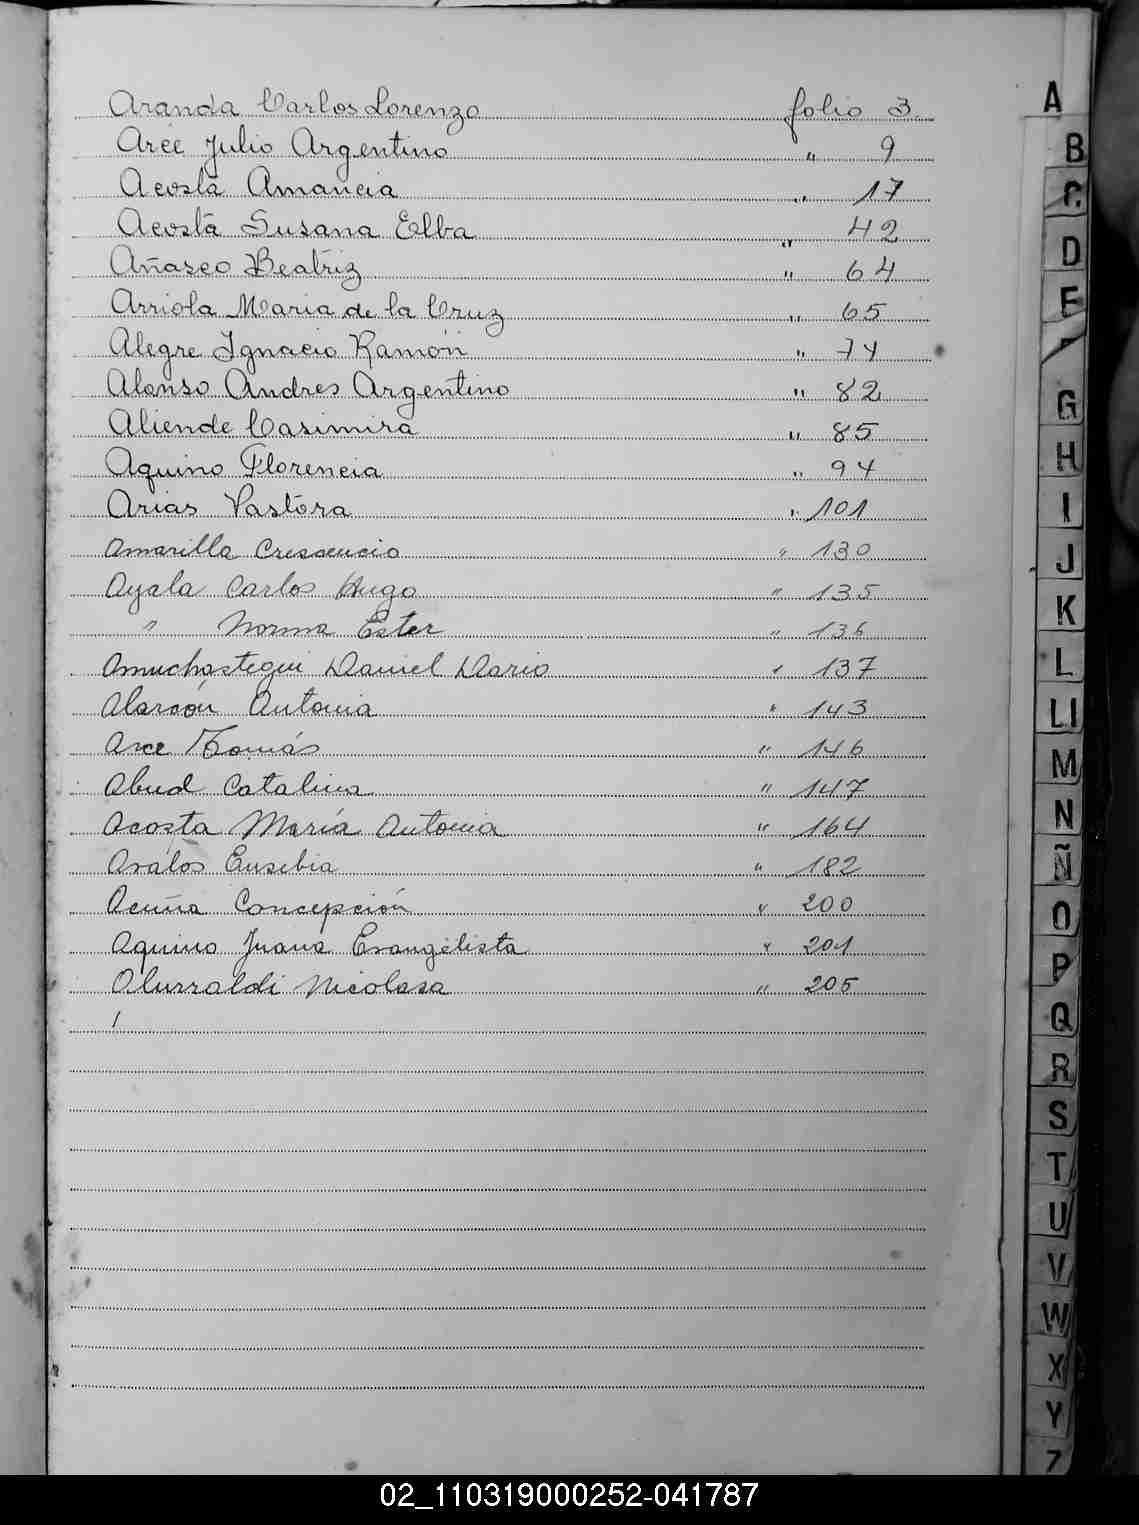 Aranda Carlos Lorenzo folio 3
Arce Julio Argentino " 9
Acosta Amancia " 17
Acosta Susana Elba " 42
Añasco Beatriz " 64
Arriola Maria de la Cruz " 65
Alegre Ignacio Ramón " 74
Alonso Andres Argentino " 82
Aliende Casimira " 85
Aquino Florencia " 94
Arias Pastora " 101
Amarilla Crescencio " 130
Ayala Carlos Hugo " 135
" Norma Ester " 136
Amuchastegui Daniel Dario " 137
Alarcón Antonia " 143
Arce Tomás " 146
Abud Catalina " 147
Acosta María Antonia " 164
Avalos Eusebia " 182
Acuña Concepción " 200
Aquino Juana Evangelista " 201
Alurraldi Nicolasa " 205
A
B
C
D
E
F
G
H
I
J
K
L
Ll
M
N
Ñ
O
P
Q
R
S
T
U
V
W
X
Y
Z
02_110319000252-041787